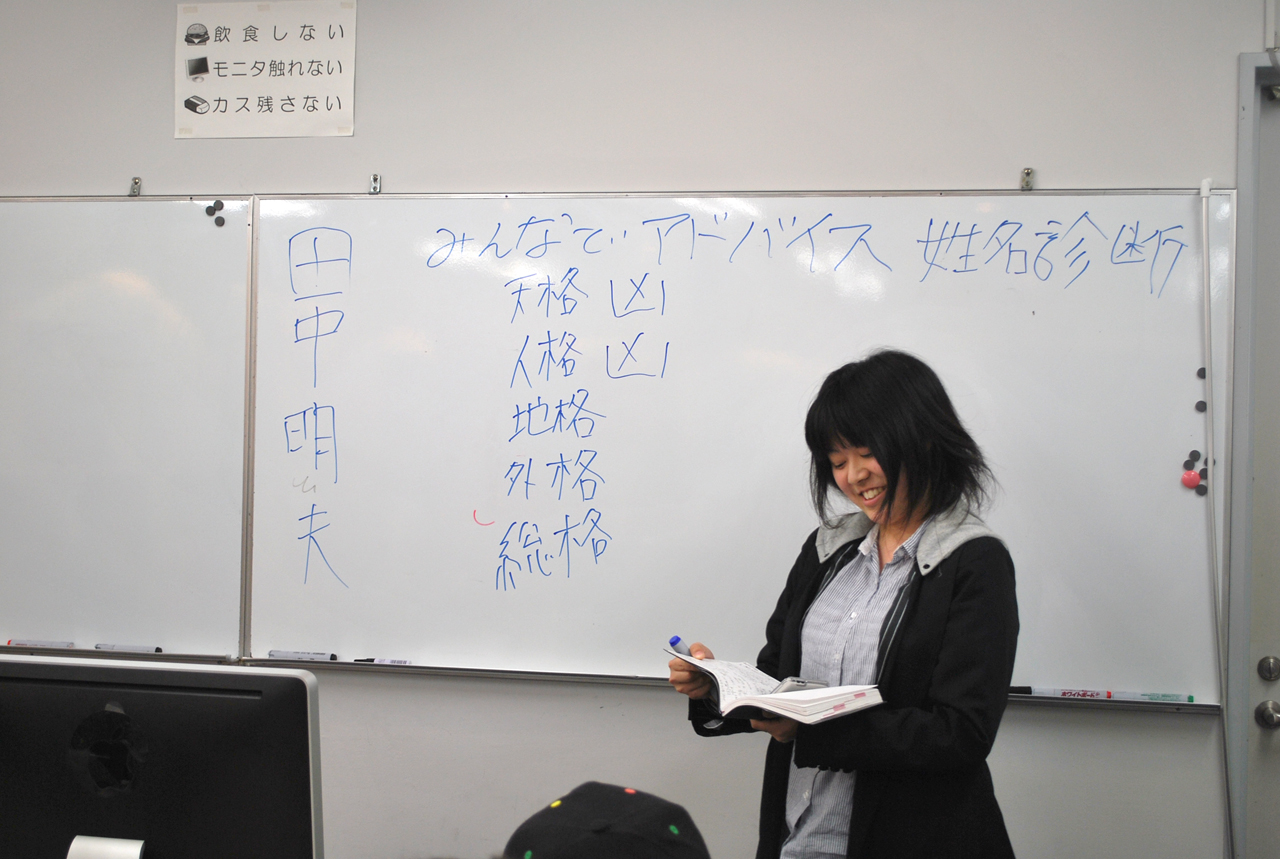 飲食しない
モニタ触れない
カス残さない
みんなで アドバイス 姓名診断
田中 明夫
天格 凶
人格 凶
地格
外格
総格
ホワイトボード